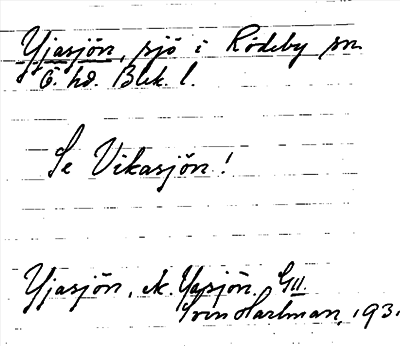 Yjasjön, sjö i Rödeby sn
Ö. hd. Blek. l.
Se Vikasjön!
Yjasjön, ek. Yasjön GII
Sven Hartman, 193